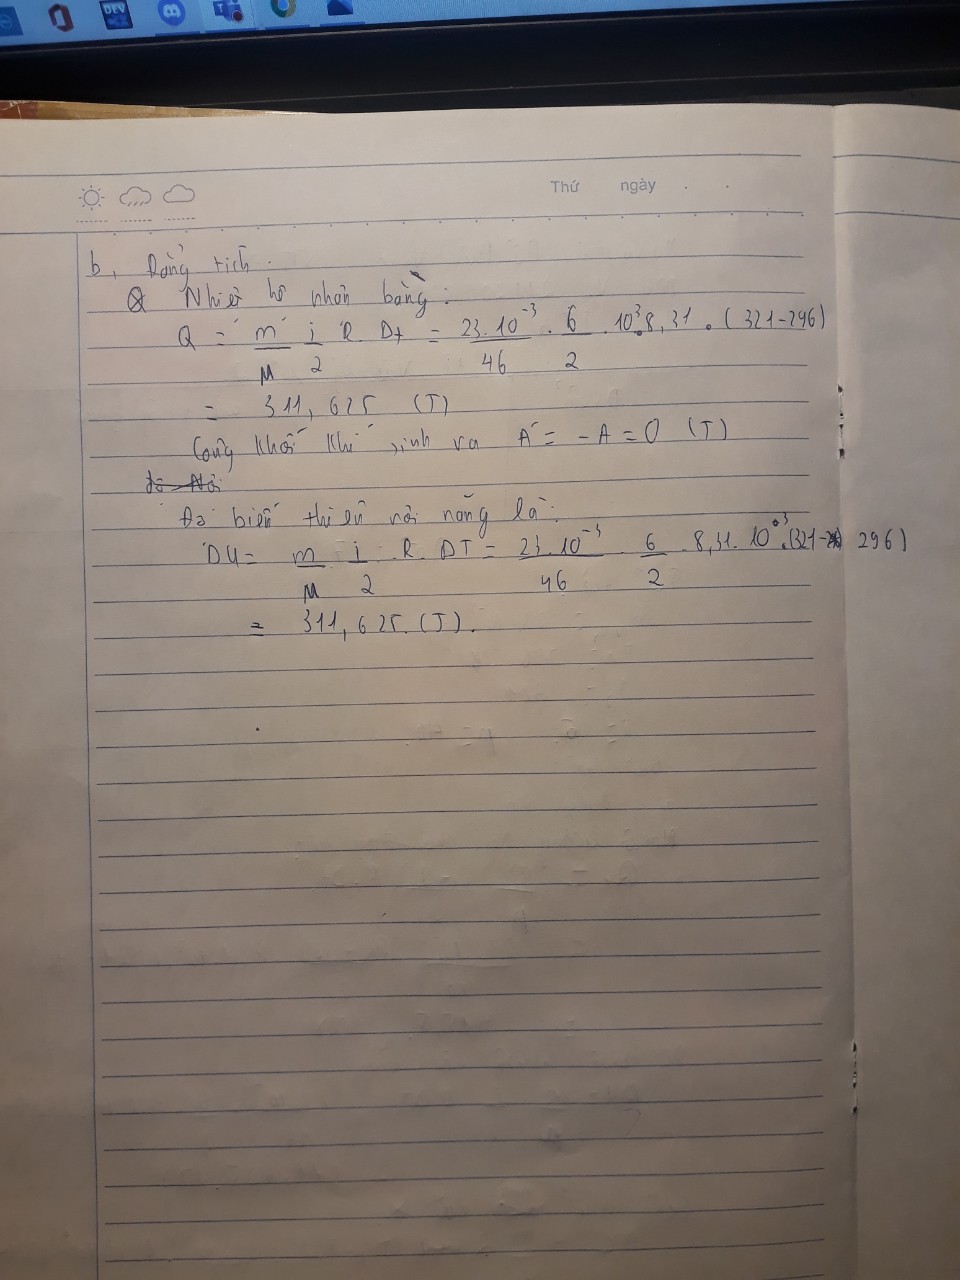 DEV
Thứ ngày . .
b, Đẳng tích.
Q Nhiệt hệ nhận bằng:
Q = m/M i/2 R. Δt = 23.10⁻³/46 . 6/2 . 10³.8,31 . (321-296)
= 311,625 (J)
Công khối khí sinh ra A' = -A = 0 (J)
độ Nội
Độ biến thiên nội năng là:
ΔU = m/M i/2 . R. ΔT = 23.10⁻³/46 . 6/2 . 8,31. 10³.(321- 296)
= 311,625. (J).